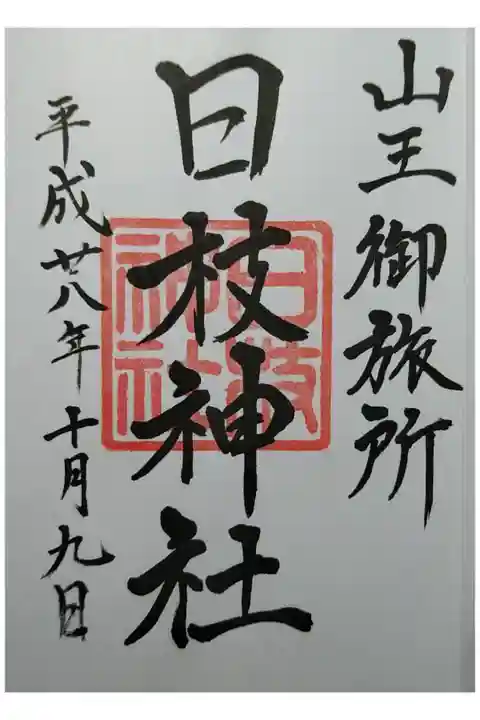 山王御旅所
日枝神社
日枝神社
平成廿八年十月九日